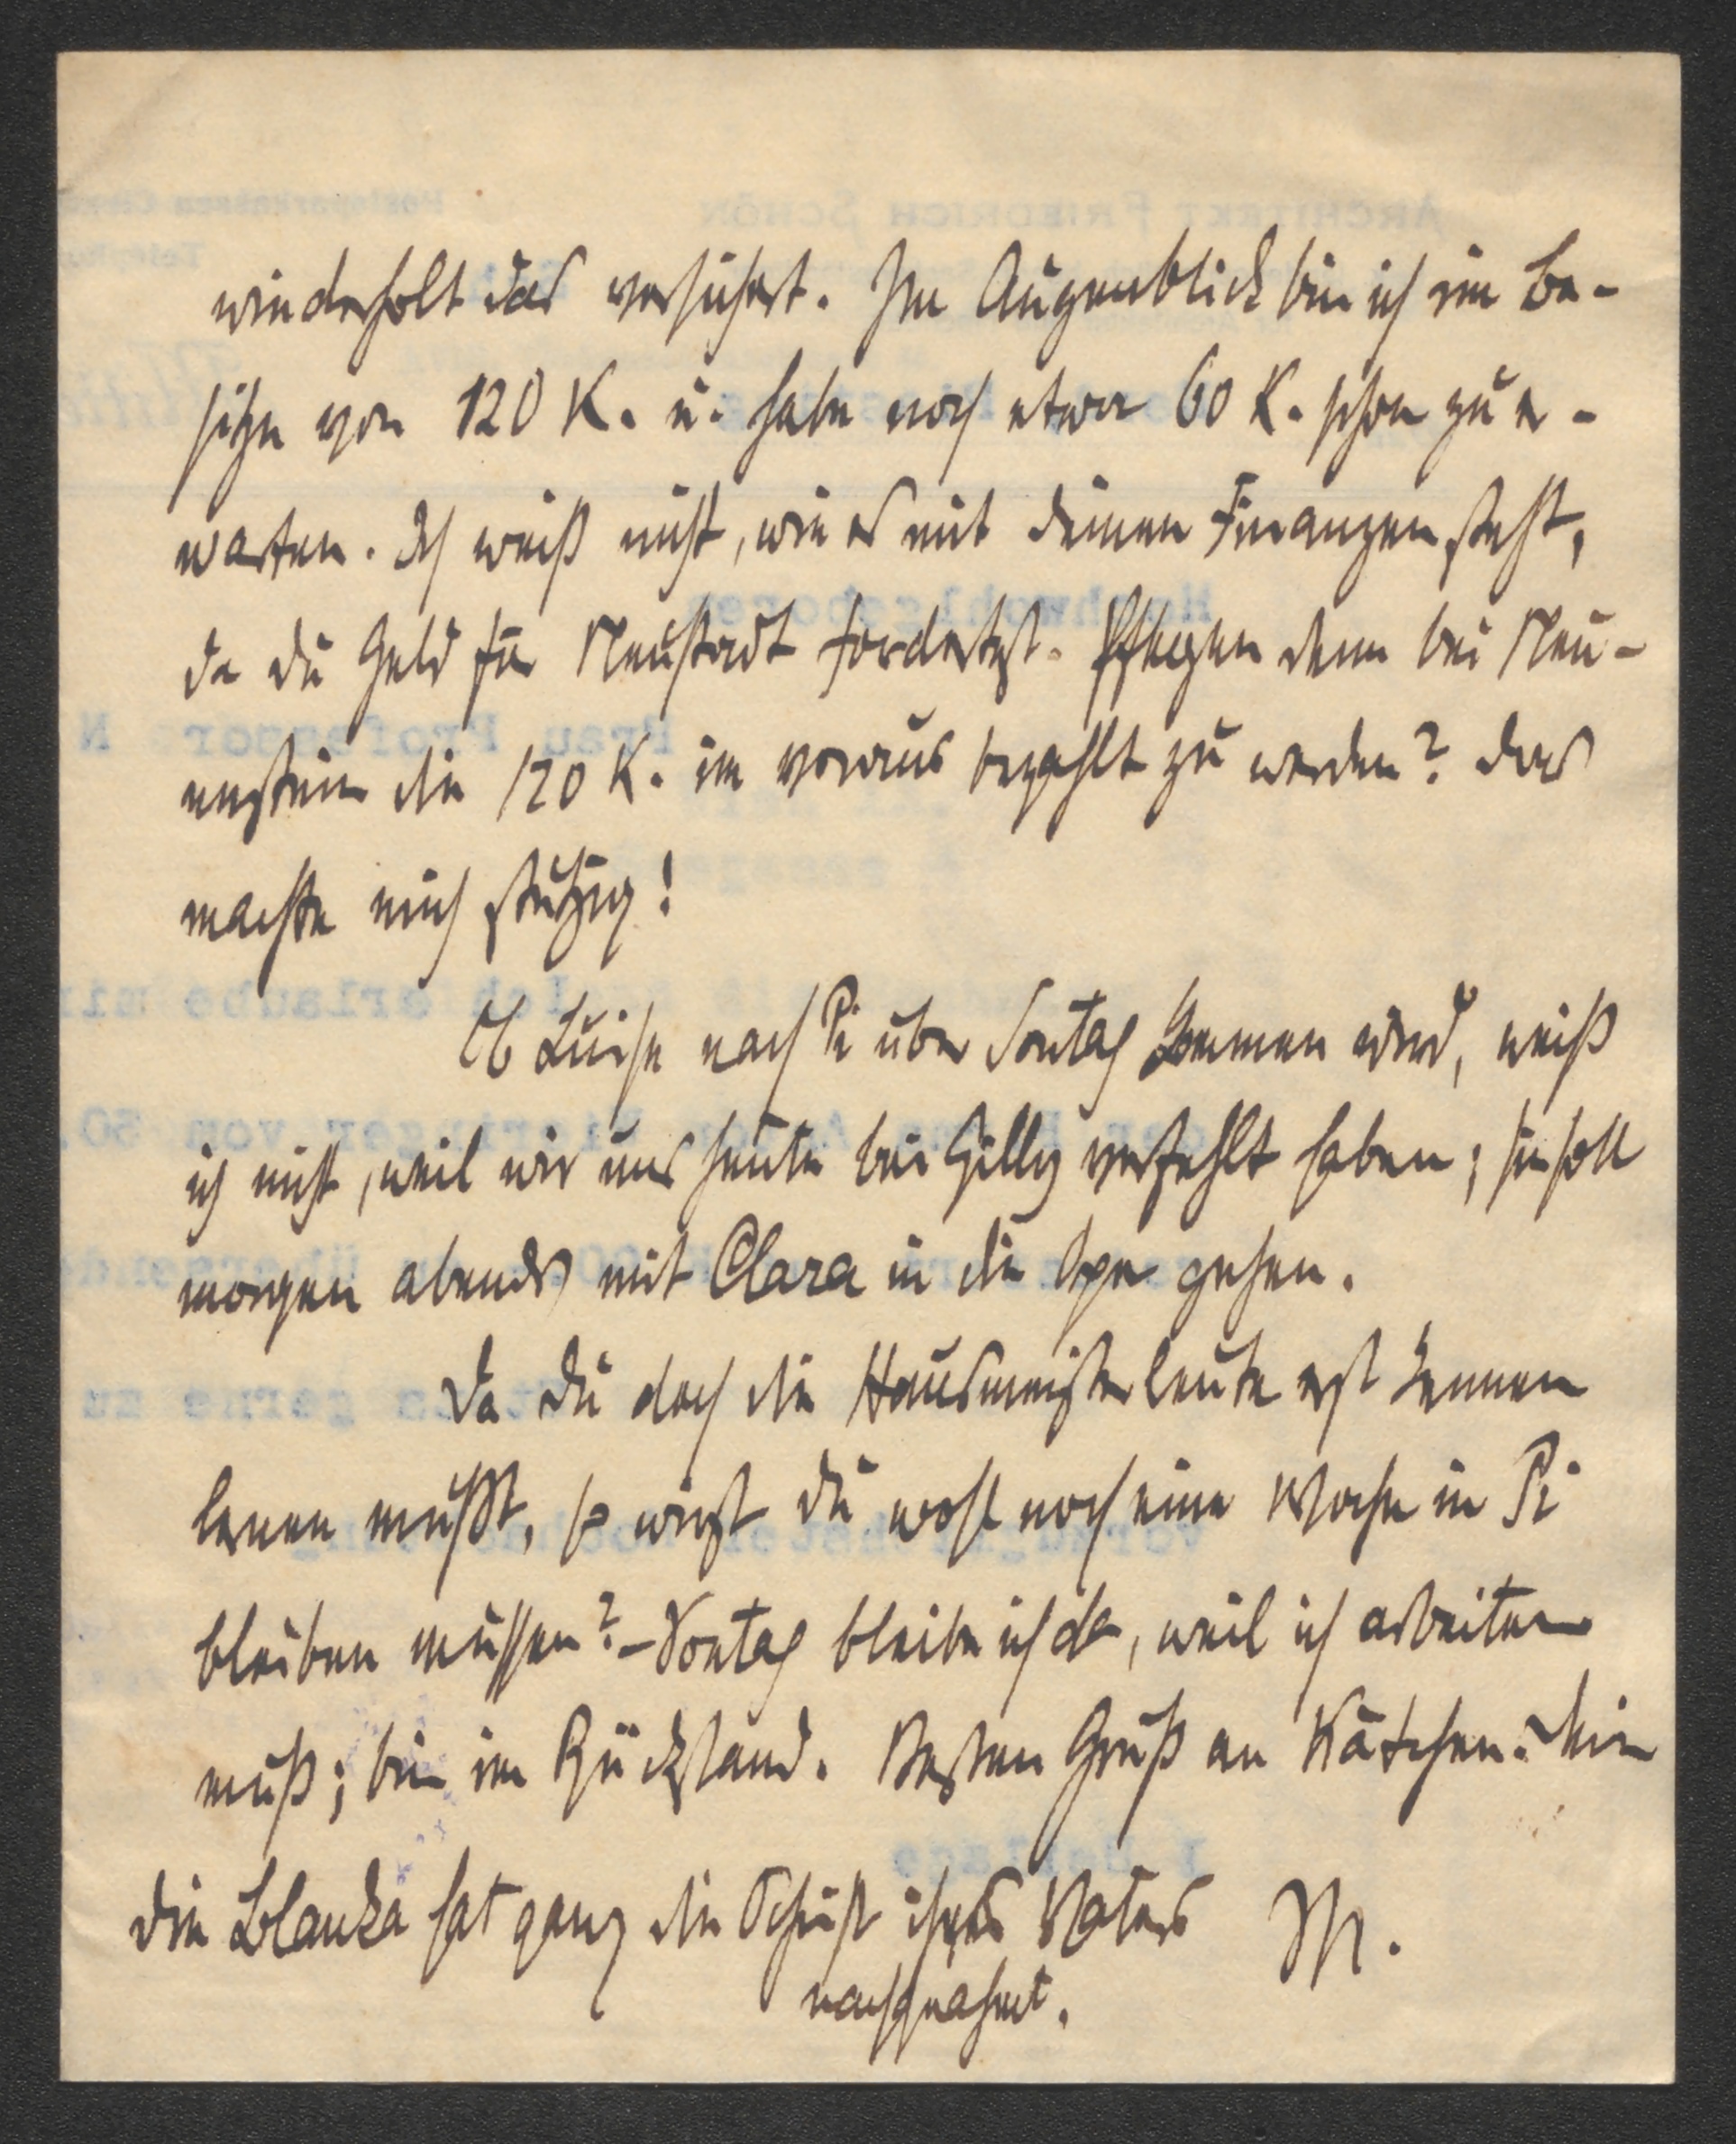 wiederholt das versichert. Im Augenblick bin ich im Be-
sitze von 120 K. u. habe noch etwa 60 K. schon zu er-
warten. Ich weiß nicht, wie es mit deinen Finanzen steht,
da du Geld für Neustadt fordertest. Pflegen denn bei Neu-
enstein die 120 K. im voraus bezahlt zu werden? Das
machte mich stutzig!
Ob Luise nach Pi über Sontag kommen wird, weiß
ich nicht, weil wir uns heute bei Gilly verfehlt haben; sie soll
morgen abends mit Clara in die Oper gehen.
Da du doch die Hausmeisterleute erst kennen
lernen mußt, so wirst du wohl noch eine Woche in Pi
bleiben müssen? – Sontag bleibe ich da, weil ich arbeiten
muß; bin im Rückstand. Besten Gruß an Kätchen.
Die Blanka hat ganz die Schrift ihres Vaters M.
nachgeahmt.
ARCHITEKT FRIEDRICH SCHÖN
Hochwohlgeboren
Frau Professors N
Ich erlaube mir
vom 30.
gerne zu